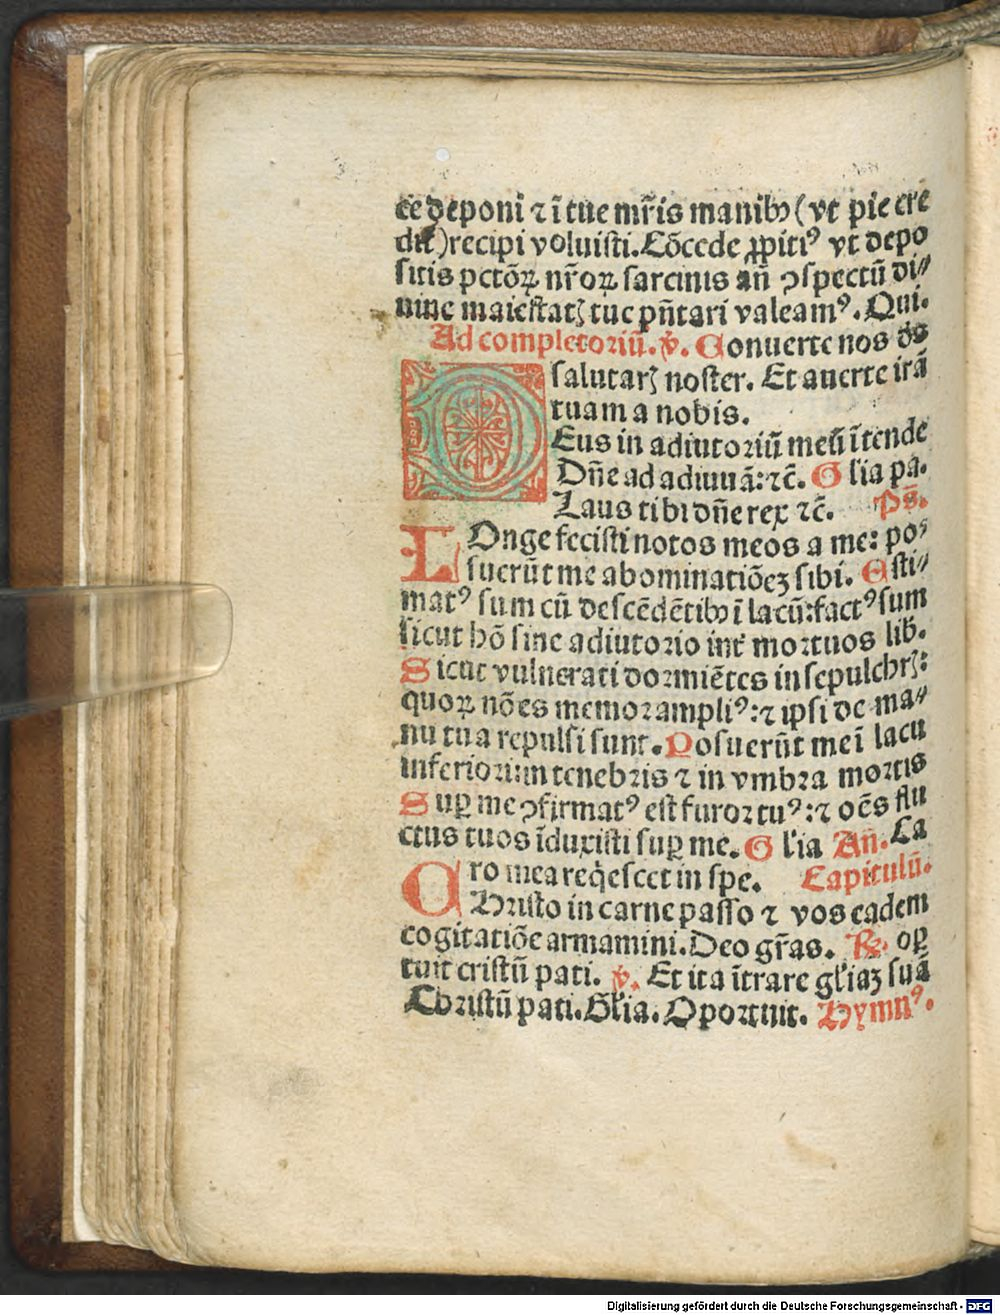 ce deponi ⁊ ī tue mr̄is manibꝰ (vt pie cre
dit) recipi voluisti. Cōcede ꝓpitiꝰ vt depo
sitis pctōꝝ nr̄oꝝ sarcinis añ ꝯspectū di⸗
uine maiestatꝫ tue pn̄tari valeamꝰ. Qui.
Ad completoriū. ℣. Conuerte nos ds̄
salutarꝫ noster. Et auerte irā
tuam a nobis.
DEus in adiutoriū meū ītende
Dn̄e ad adiuuā: ⁊c̄. Glīa pa.
Laus tibi dn̄e rex ⁊c̄. Ps̄.
LOnge fecisti notos meos a me: poꝰ
suerūt me abominatiōeꝫ sibi. Esti⸗
matꝰ sum cū descēdētibꝰ ī lacū: factꝰ sum
sicut hō sine adiutorio int̄ mortuos lib̄.
Sicut vulnerati dormiētes in sepulchrꝫ:
quoꝝ nō es memor ampliꝰ: ⁊ ipsi de ma⸗
nu tua repulsi sunt. Posuerūt me ī lacu
inferiori: in tenebris ⁊ in vmbra mortis
Suꝑ me ꝯfirmatꝰ est furor tuꝰ: ⁊ oēs flu
ctus tuos īduxisti suꝑ me. Glīa Añ. Ca
ro mea reqͥescet in spe. Capitulū.
CHristo in carne passo ⁊ vos eadem
cogitatiōe armamini. Deo gr̄as. ℟. oꝑ
tuit cristū pati. ℣. Et ita ītrare gl̄iaꝫ suā
Christū pati. Gl̄ia. Oportuit. Hymnꝰ.
Digitalisierung gefördert durch die Deutsche Forschungsgemeinschaft - DFG